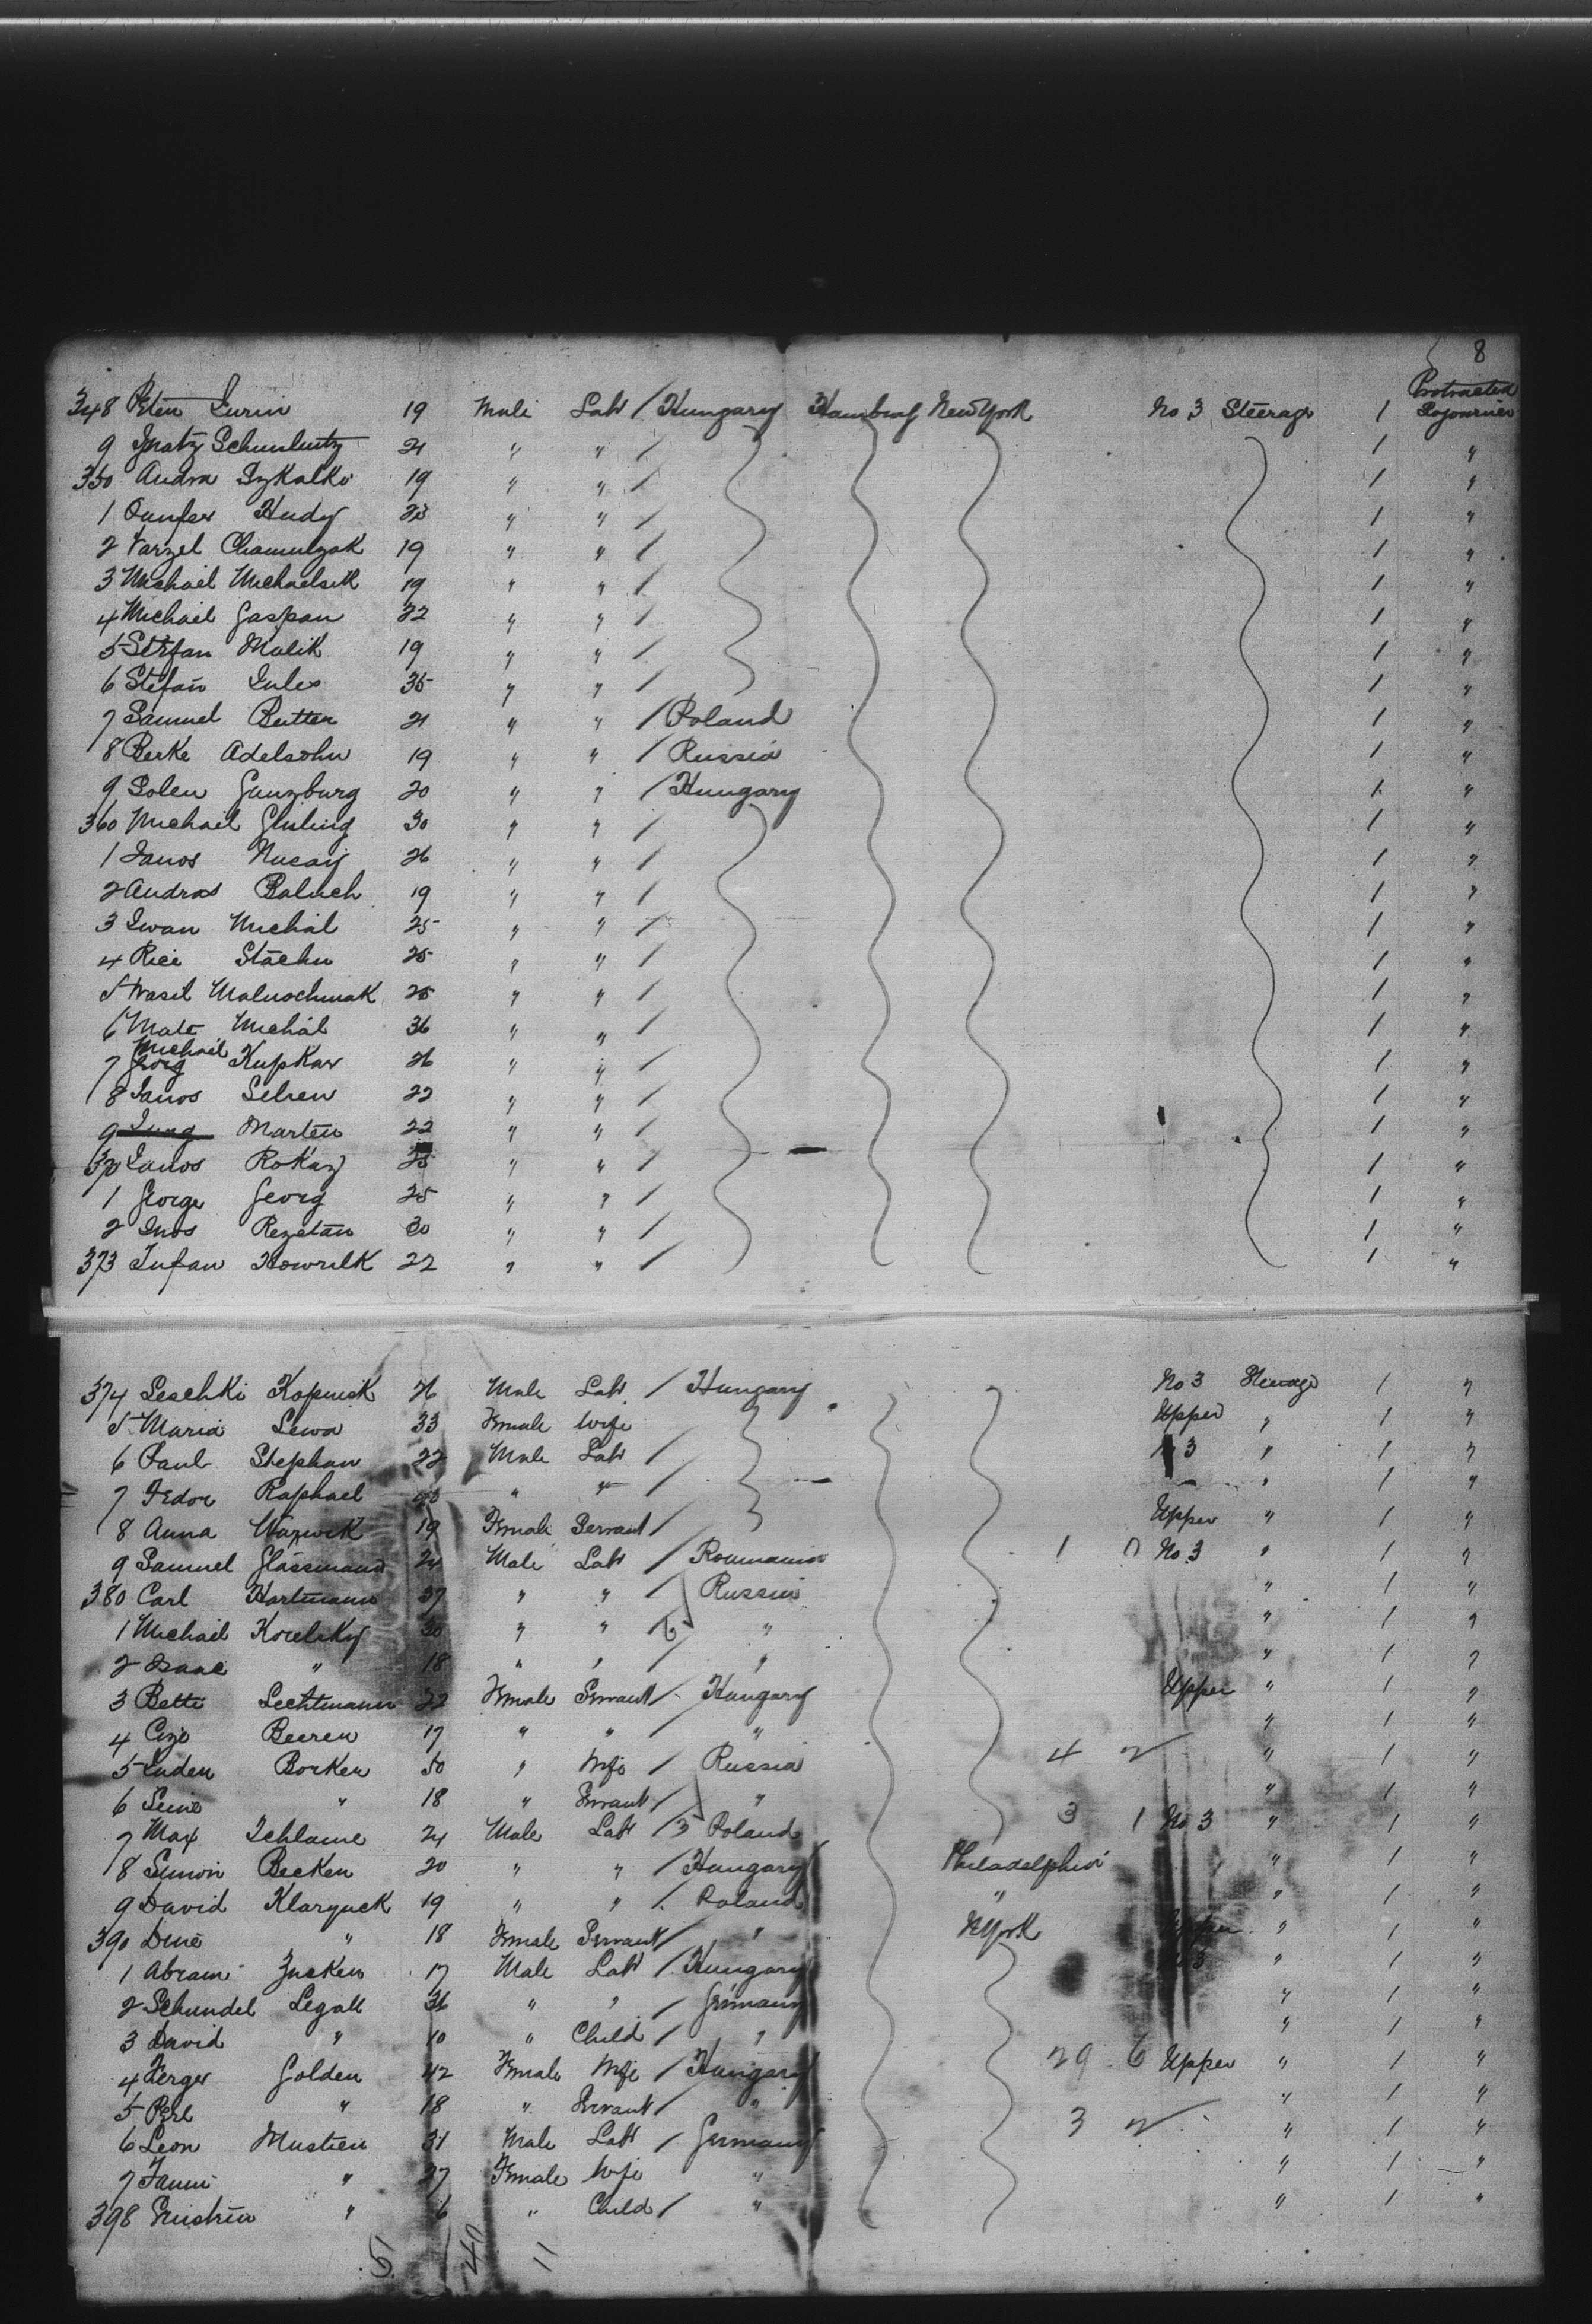 8
348 Peter Lurin 19 Male Labr / Hungary Hamburg New York No 3 Steerage 1 Protracted Sojourner
9 Ignatz 21 " " / 1 "
350 Andra Szkalko 19 " " / 1 "
1 Hudy 23 " " / 1 "
2 Varzel Chamulzak 19 " " / 1 "
3 Michael Michaelsik 19 " " / 1 "
4 Michael Gaspan 22 " " / 1 "
5 Stefan Malik 19 " " / 1 "
6 Stefan Lules 35 " " / 1 "
7 Samuel Butten 21 " " / Poland 1 "
8 Berke Adelsohn 19 " " / Russia 1 "
9 Solen Gunzburg 20 " " / Hungary 1 "
360 Michael 30 " " / 1 "
1 Janos Nucaij 26 " " / 1 "
2 Andras Baluch 19 " " / 1 "
3 Iwan Michal 25 " " / 1 "
4 Rici Stachu 25 " " / 1 "
5 Wasil Maluschmak 25 " " / 1 "
6 Mate Michal 36 " " / 1 "
7 Michael Georg Kupkar 26 " " / 1 "
8 Janos Selren 22 " " / 1 "
9 Marten 22 " " / 1 "
370 Janos Rokaz 25 " " / 1 "
1 George Georg 25 " " / 1 "
2 Rezetan 30 " " / 1 "
373 Howrilk 22 " " / 1 "
374 Leschki Kopinsk 26 Male Labr / Hungary No 3 Steerage 1 "
5 Maria Lewa 33 Female Wife Upper " 1 "
6 Paul Stephan 22 Male Labr / 3 " 1 "
7 Fedor Raphael " " / " 1 "
8 Anna Wazwik 19 Female Servant / Upper " 1 "
9 Samuel Glassmann 24 Male Labr / Roumania 1 No 3 " 1 "
380 Carl Hartmann 37 " " / Russia " 1 "
1 Michael Korelsky 30 " " / " " 1 "
2 Isaac " 18 " " / " " 1 "
3 Betti Lechtmann 22 Female Servant / Hungary Upper " 1 "
4 Beeren 17 " " / " " 1 "
5 Luden Borken 50 " Wife / Russia 4 2 " 1 "
6 " 18 " Servant / " " 1 "
7 Max Schlame 24 Male Labr / 3 Poland 3 1 No 3 " 1 "
8 Simon Becken 20 " " / Hungary Philadelphia " 1 "
9 David Klaryuck 19 " " / Poland " " 1 "
390 Dine " 18 Female Servant / " N York Upper " 1 "
1 Abram Zucken 17 Male Labr / Hungary 3 " 1 "
2 Schundel Legall 36 " " / Germany " 1 "
3 David " 10 " Child / " " 1 "
4 Golden 42 Female Wife / Hungary 29 6 Upper " 1 "
5 Perl " 18 " Servant / " " 1 "
6 Leon Mustien 31 Male Labr / Germany 3 2 " 1 "
7 Fanni " 27 Female Wife " " 1 "
398 " 6 " Child / " " 1 "
5 40 11